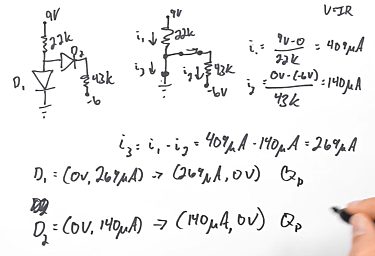 9V
22k
D₂
D₁
43k
-6
9V
i₁ ↓
22k
i₃ ↓
i₂ ↓
43k
-6V
V=IR
i₁ = 9V-0 / 22k = 409μA
i₂ = 0V-(-6V) / 43k = 140μA
i₃ = i₁ - i₂ = 409μA - 140μA = 269μA
D₁ = (0V, 269μA) → (269μA, 0V) Qp
D₂ = (0V, 140μA) → (140μA, 0V) Qp